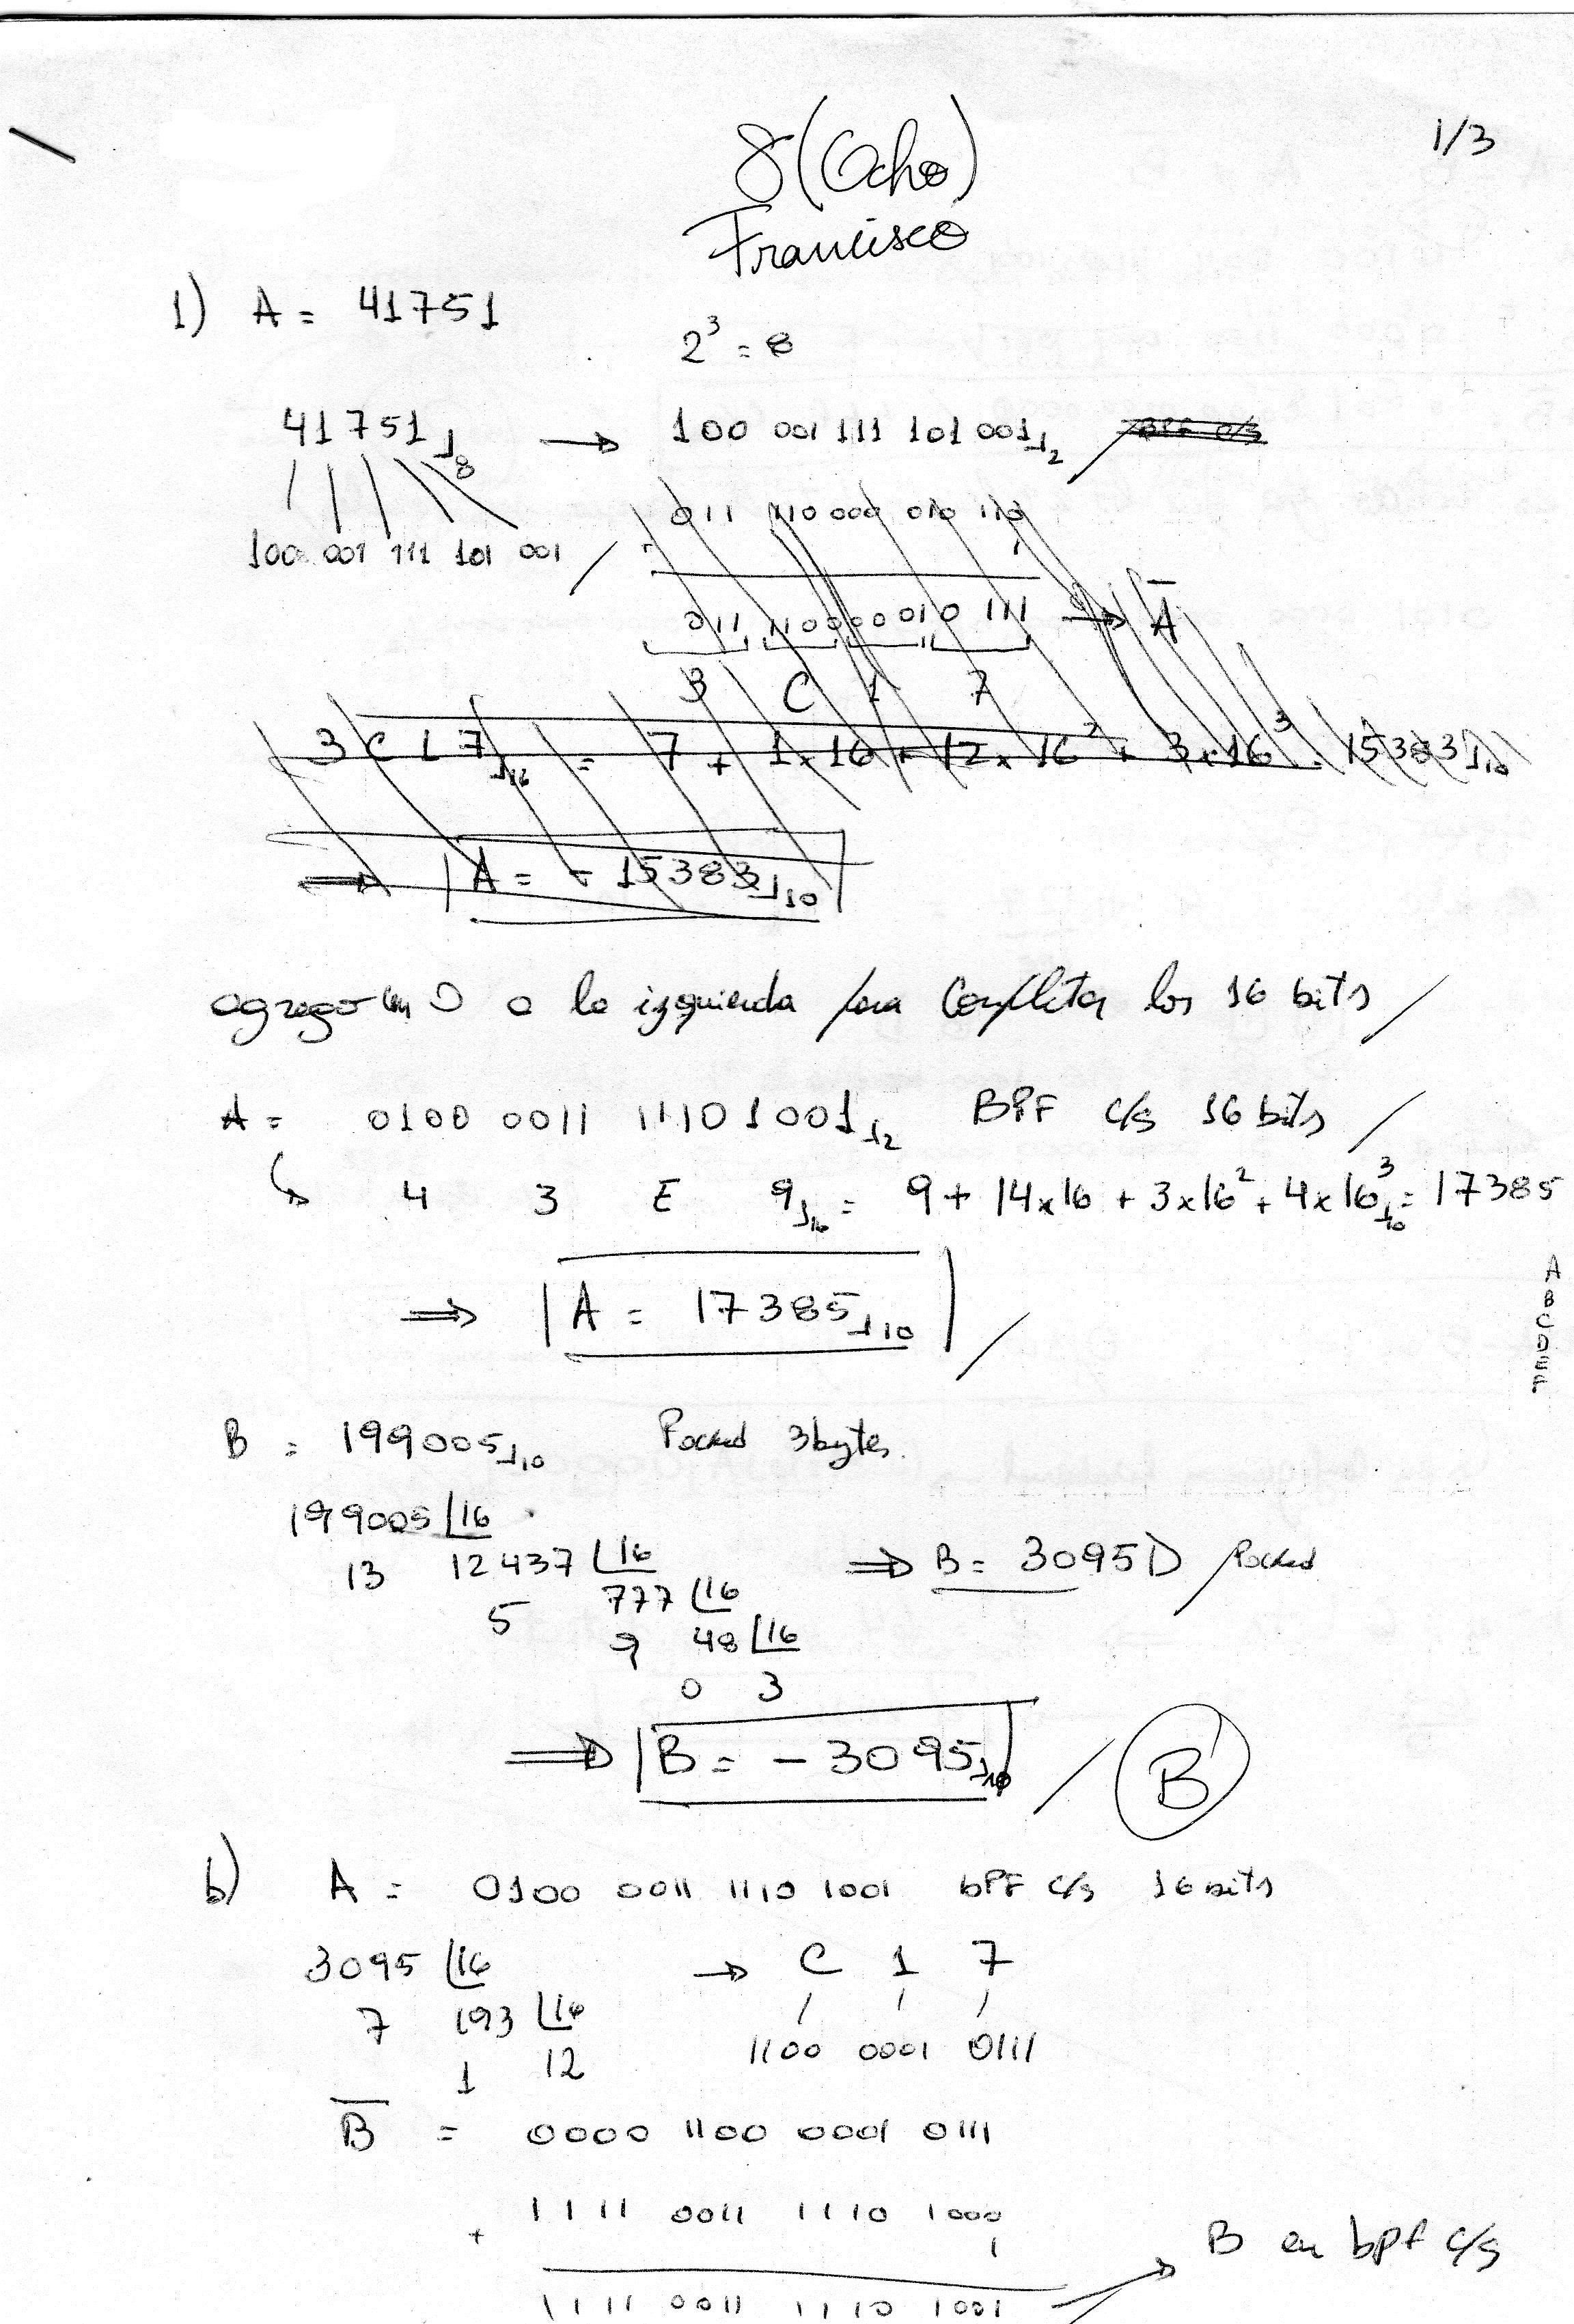 1/3
8 (Ocho)
Francisco
1) A = 41751
2³ = 8
41751⌋₈ → 100 001 111 101 001⌋₂ BPF c/s
100 001 111 101 001
011 110 000 010 110
1
011 110000 010 111 → Ā
3 C 1 7
3C17⌋₁₆ = 7 + 1x16 + 12x16² + 3x16³ = 15383⌋₁₀
⇒ A = - 15383⌋₁₀
agrego un 0 a la izquierda para completar los 16 bits
A = 0100 0011 1110 1001⌋₂ BPF c/s 16 bits
↳ 4 3 E 9⌋₁₆ = 9 + 14x16 + 3x16² + 4x16³⌋₁₀ = 17385
⇒ A = 17385⌋₁₀
A
B
C
D
E
F
B = 199005⌋₁₀ Packed 3 bytes.
199005 |16
13 12437 |16
5 777 |16
9 48 |16
0 3
⇒ B = 3095D Packed
⇒ B = - 3095⌋₁₀
B
b) A = 0100 0011 1110 1001 bPF c/s 16 bits
3095 |16 → C 1 7
7 193 |16
1 12
1100 0001 0111
B̄ = 0000 1100 0001 0111
1111 0011 1110 1000
+ 1
1111 0011 1110 1001 → B en bpf c/s